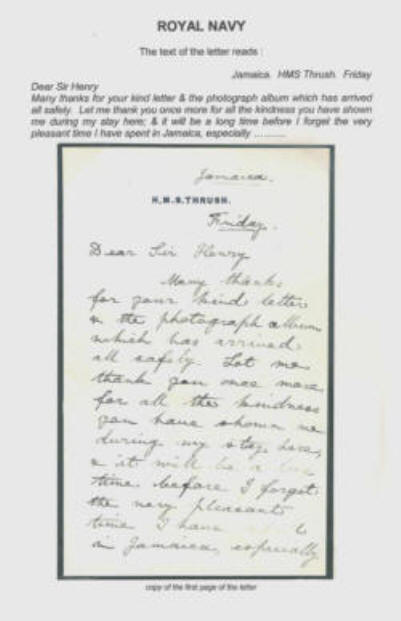 ROYAL NAVY
The text of the letter reads :
Jamaica. HMS Thrush. Friday
Dear Sir Henry
Many thanks for your kind letter & the photograph album which has arrived
all safely. Let me thank you once more for all the kindness you have shown
me during my stay here; & it will be a long time before I forget the very
pleasant time I have spent in Jamaica, especially ..........
Jamaica.
H.M.S.THRUSH.
Friday.
Dear Sir Henry
Many thanks
for your kind letter
& the photograph album
which has arrived
all safely. Let me
thank you once more
for all the kindness
you have shown me
during my stay here,
& it will be a
time before I forget
the very pleasant
time I have
in Jamaica, especially
copy of the first page of the letter